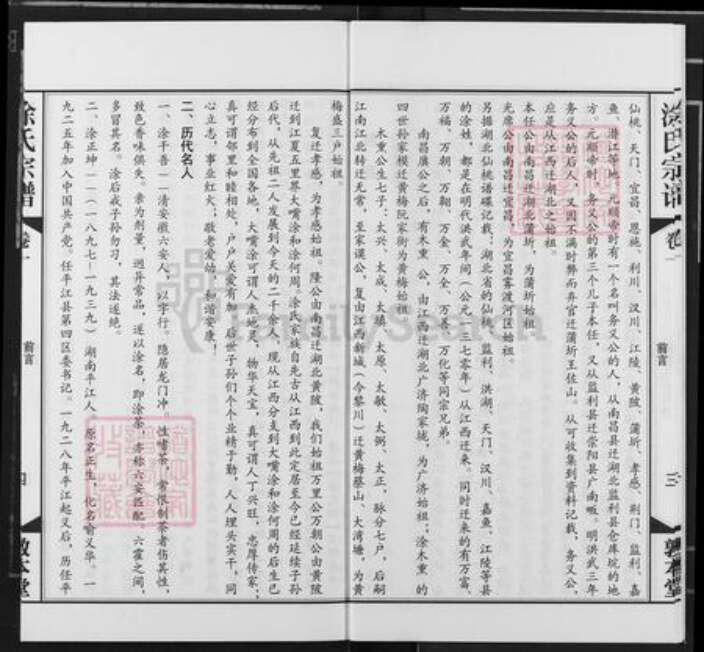 涂氏宗谱
卷一
前言
三
敦本堂
仙桃、天门、宜昌、恩施、利川、汉川、江陵、黄陂、蒲圻、孝感、荆门、监利、嘉
鱼、潜江等地。元顺帝时有一个名叫务义公的人，从南昌县迁湖北监利县仓库垸的地
方。元顺帝时，务义公的第三个儿子本任，又从监利县迁崇阳县广南畈。明洪武三年
务义公的后人，又因不满时弊而弃官迁蒲圻王佐山。从可收集到资料记载：务义公，
应是从江西迁湖北之始祖。
本任公由南昌迁湖北蒲圻，为蒲圻始祖
光席公由南昌迁宜昌，为宜昌雾渡河区始祖。
另据湖北仙桃谱碟记载：湖北省的仙桃、监利、洪湖、天门、汉川、嘉鱼、江陵等县
的涂姓，都是在明代洪武年间（公元一三七零年）从江西迁来。同时迁来的有万富、
万福、万朝、万朝、万金、万全、万喜、万化等同宗兄弟。
南昌廣公之后，有木重 公，由江西迁湖北广济陶家垅，为广济始祖；涂木重 的
四世孙家模迁黄梅阮家街为黄梅始祖
木重公生七子：太兴、太成、太镇、太原、太敏、太弼、太正，脉分七户，后嗣
江南江北转迁无常，至家谟公，复由江西新城（今黎川）迁黄梅蔡山、大湾塘，为黄
梅盛三户始祖。
复迁孝感，为孝感始祖。隆公由南昌迁湖北黄陂，我们始祖万里公万朝公由黄陂
迁到江夏五里界大嘴涂和涂何周。涂氏家族自先古从江西到此定居至今已经延续子孙
后代，从先祖二人发展到今天的二千余多人，现从江西分支到大嘴涂和涂何周的后生已
经分布到全国各地，大嘴涂可谓人杰地灵，物华天宝，真可谓人丁兴旺，忠厚传家；
真可谓邻里和睦相处，户户关爱有加，后世子孙们个个业精于勤，人人埋头实干，同
心立志，事业红火；敬老爱幼，和谐安康！
二、历代名人
一、涂干吾——清安徽六安人，以字行。隐居龙门冲。性嗜茶，常恨制茶者伤其性，
致色香味俱失。亲为剂量，迥异常品，遂以涂名，即涂茶，亦称六安匹配，六霍之间，
多冒其名。涂后戒子孙勿习，其法遂绝。
二、涂正坤——（一八九七—一九三九）湖南平江人。原名正生，化名俞义华。一
九二五年加入中国共产党。任平江县第四区委书记。一九二八年平江起义后，历任平
涂氏宗谱
卷一
前言
四
敦本堂
FamilySearch